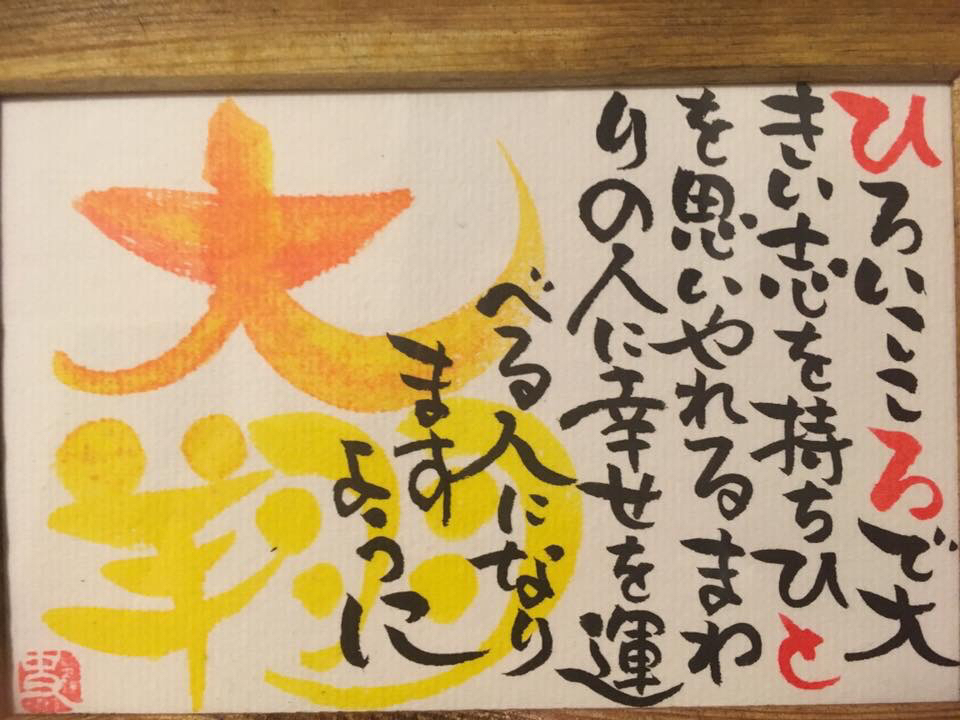 ひろいこころで大
きい志を持ちひと
を思いやれるまわ
りの人に幸せを運
べる人になり
ます
ように
大翔